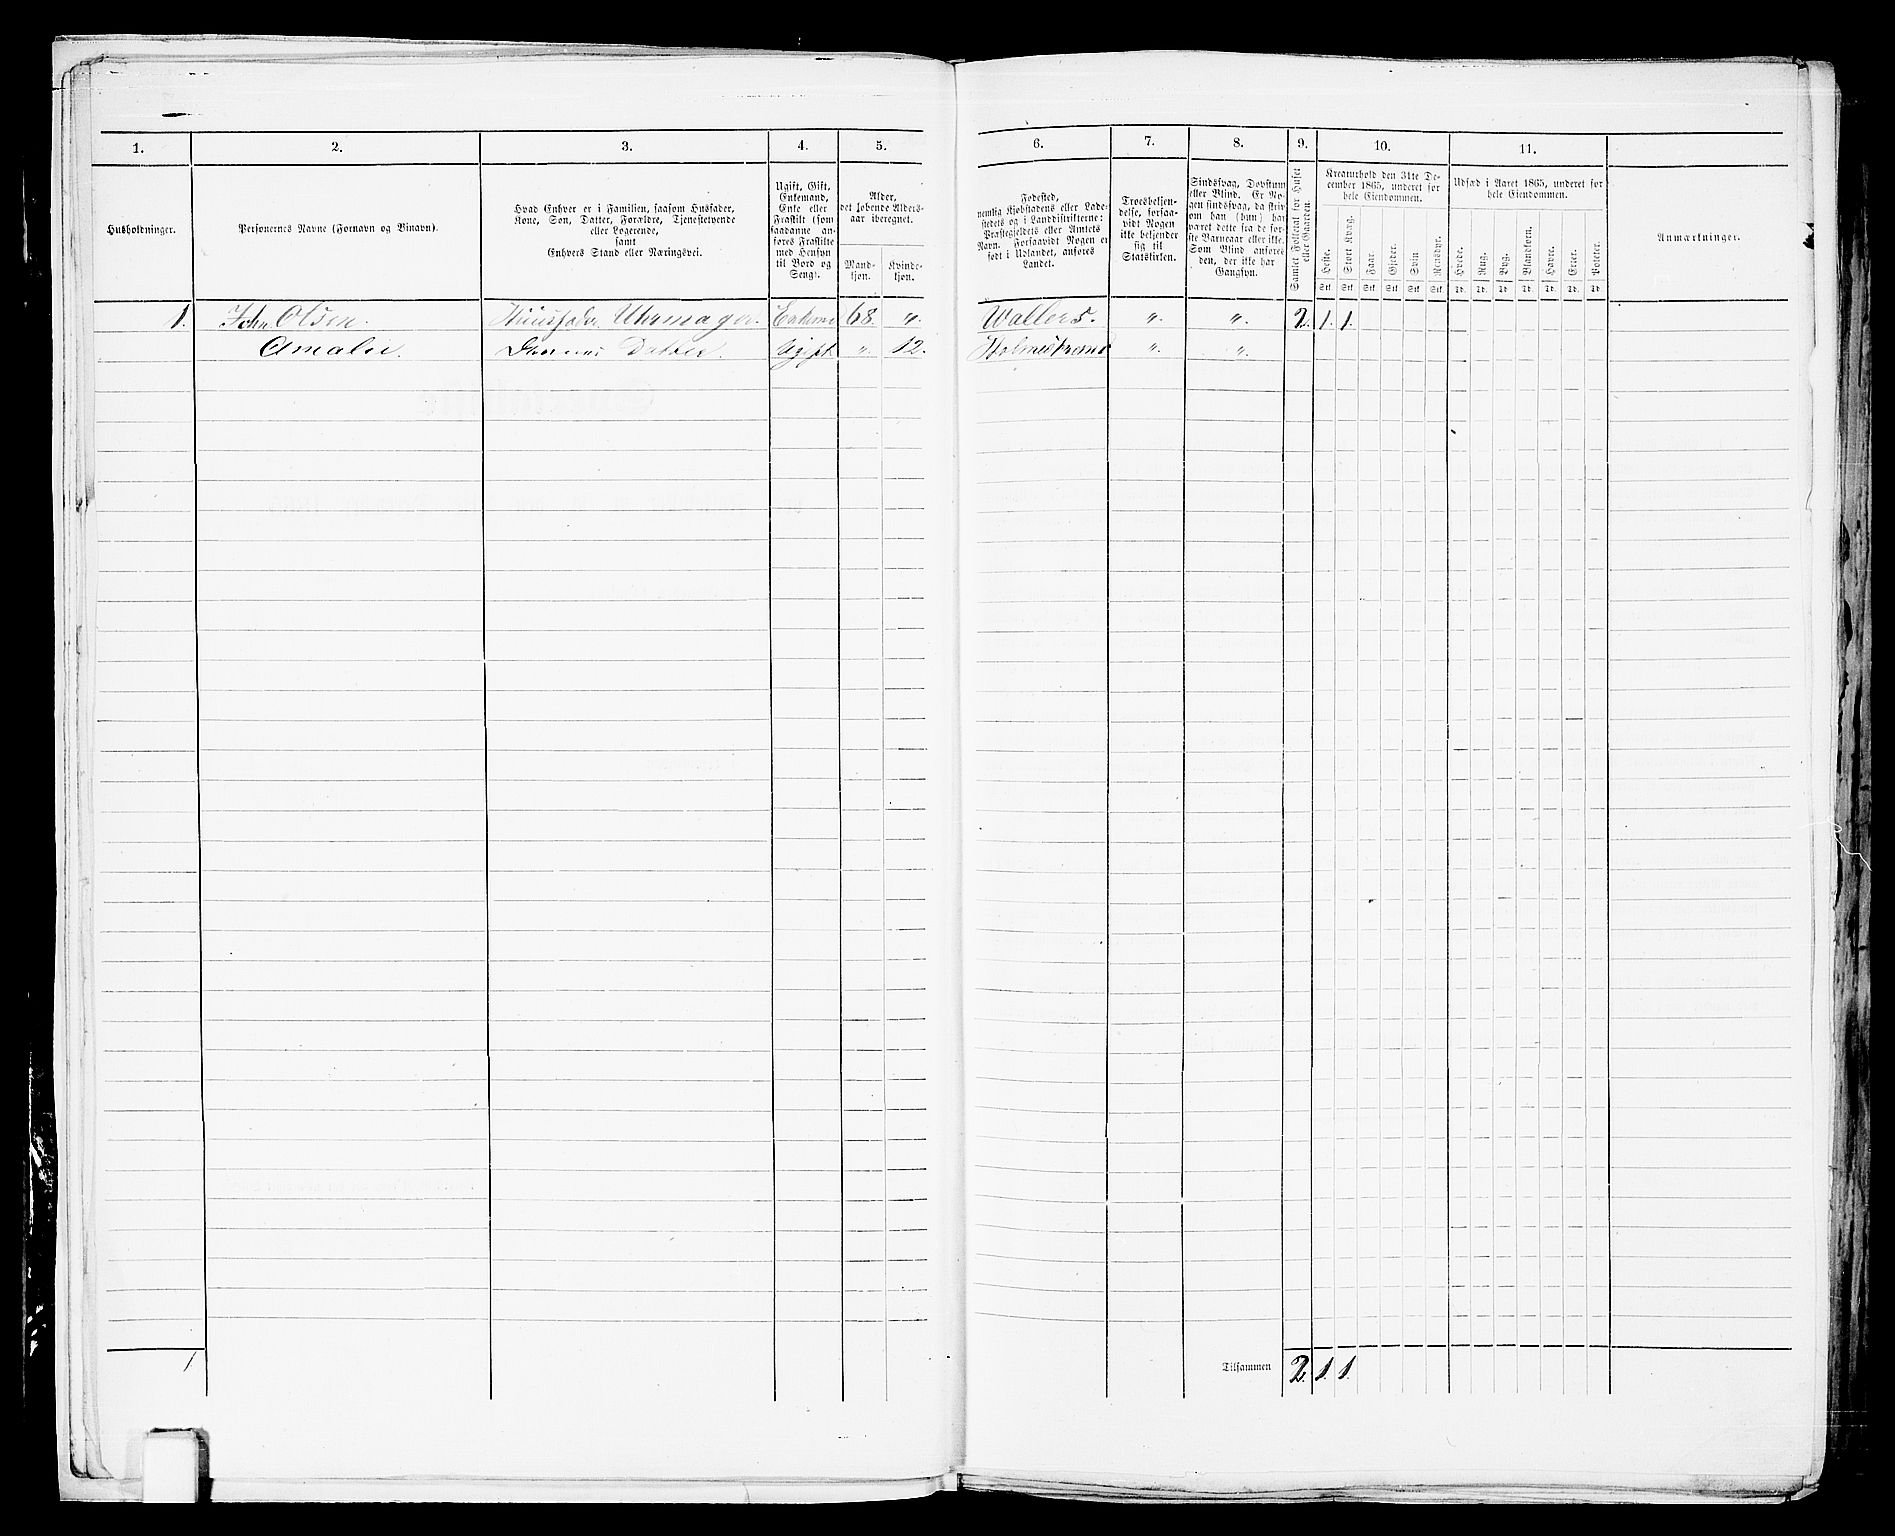 1.
2.
3.
4.
5.
6.
7.
8.
9.
10.
11.
Husholdninger.
Personernes Navne (Fornavn og Binavn).
Hvad Enhver er i Familien, saasom Husfader,
Kone, Søn, Datter, Forældre, Tjenestetyende
eller Logerende,
samt
Enhvers Stand eller Næringsvei.
Ugift, Gift,
Enkemand,
Enke eller
Fraskilt (som
saadanne an-
føres Fraskilte
med Hensyn
til Bord og
Seng).
Alder,
det løbende Alders-
aar iberegnet.
Mand-
kjøn.
Kvinde-
kjøn.
Fødested,
nemlig Kjøbstadens eller Lade-
stedets og i Landdistrikterne:
Præstegjeldets eller Amtets
Navn. Forsaavidt Nogen er
født i Udlandet, anføres
Landet.
Troesbekjen-
delse, forsaa-
vidt Nogen
ikke bekjender
sig til
Statskirken.
Sindssvag, Døvstum
eller Blind. Er No-
gen sindssvag, da skriv
om han (hun) har
været dette fra de før-
ste Barneaar eller ikke.
Som Blind anføres
den, der ikke har
Gangsyn.
Samlet Folketal for Huset
eller Gaarden.
Kreaturhold den 31te De-
cember 1865, underet for
hele Eiendommen.
Heste.
Stort Kvæg.
Faar.
Gjeder.
Svin
Rensdyr.
Stk. Stk. Stk. Stk. Stk. Stk.
Udsæd i Aaret 1865, underet for
hele Eiendommen.
Hvede.
Rug.
Byg.
Blandkorn.
Havre.
Erter.
Poteter.
Td. Td. Td. Td. Td. Td. Td.
Anmærkninger.
1. John Olsen. Huusfader Uhrmager. Enkem 68. " Wallers. " " 2 1. 1.
Amalie. Datter Ugift " 12. Holmestrand " "
1
Tilsammen 2. 1. 1.